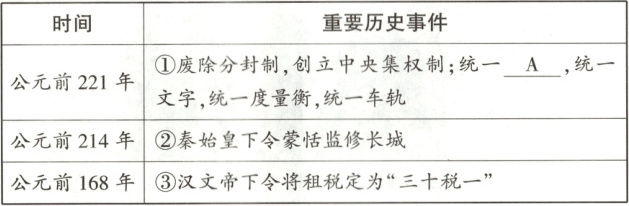 时间 重要历史事件
公元前221年 ①废除分封制,创立中央集权制;统一 A ,统一
文字,统一度量衡,统一车轨
公元前214年 ②秦始皇下令蒙恬监修长城
公元前168年 ③汉文帝下令将租税定为“三十税一”